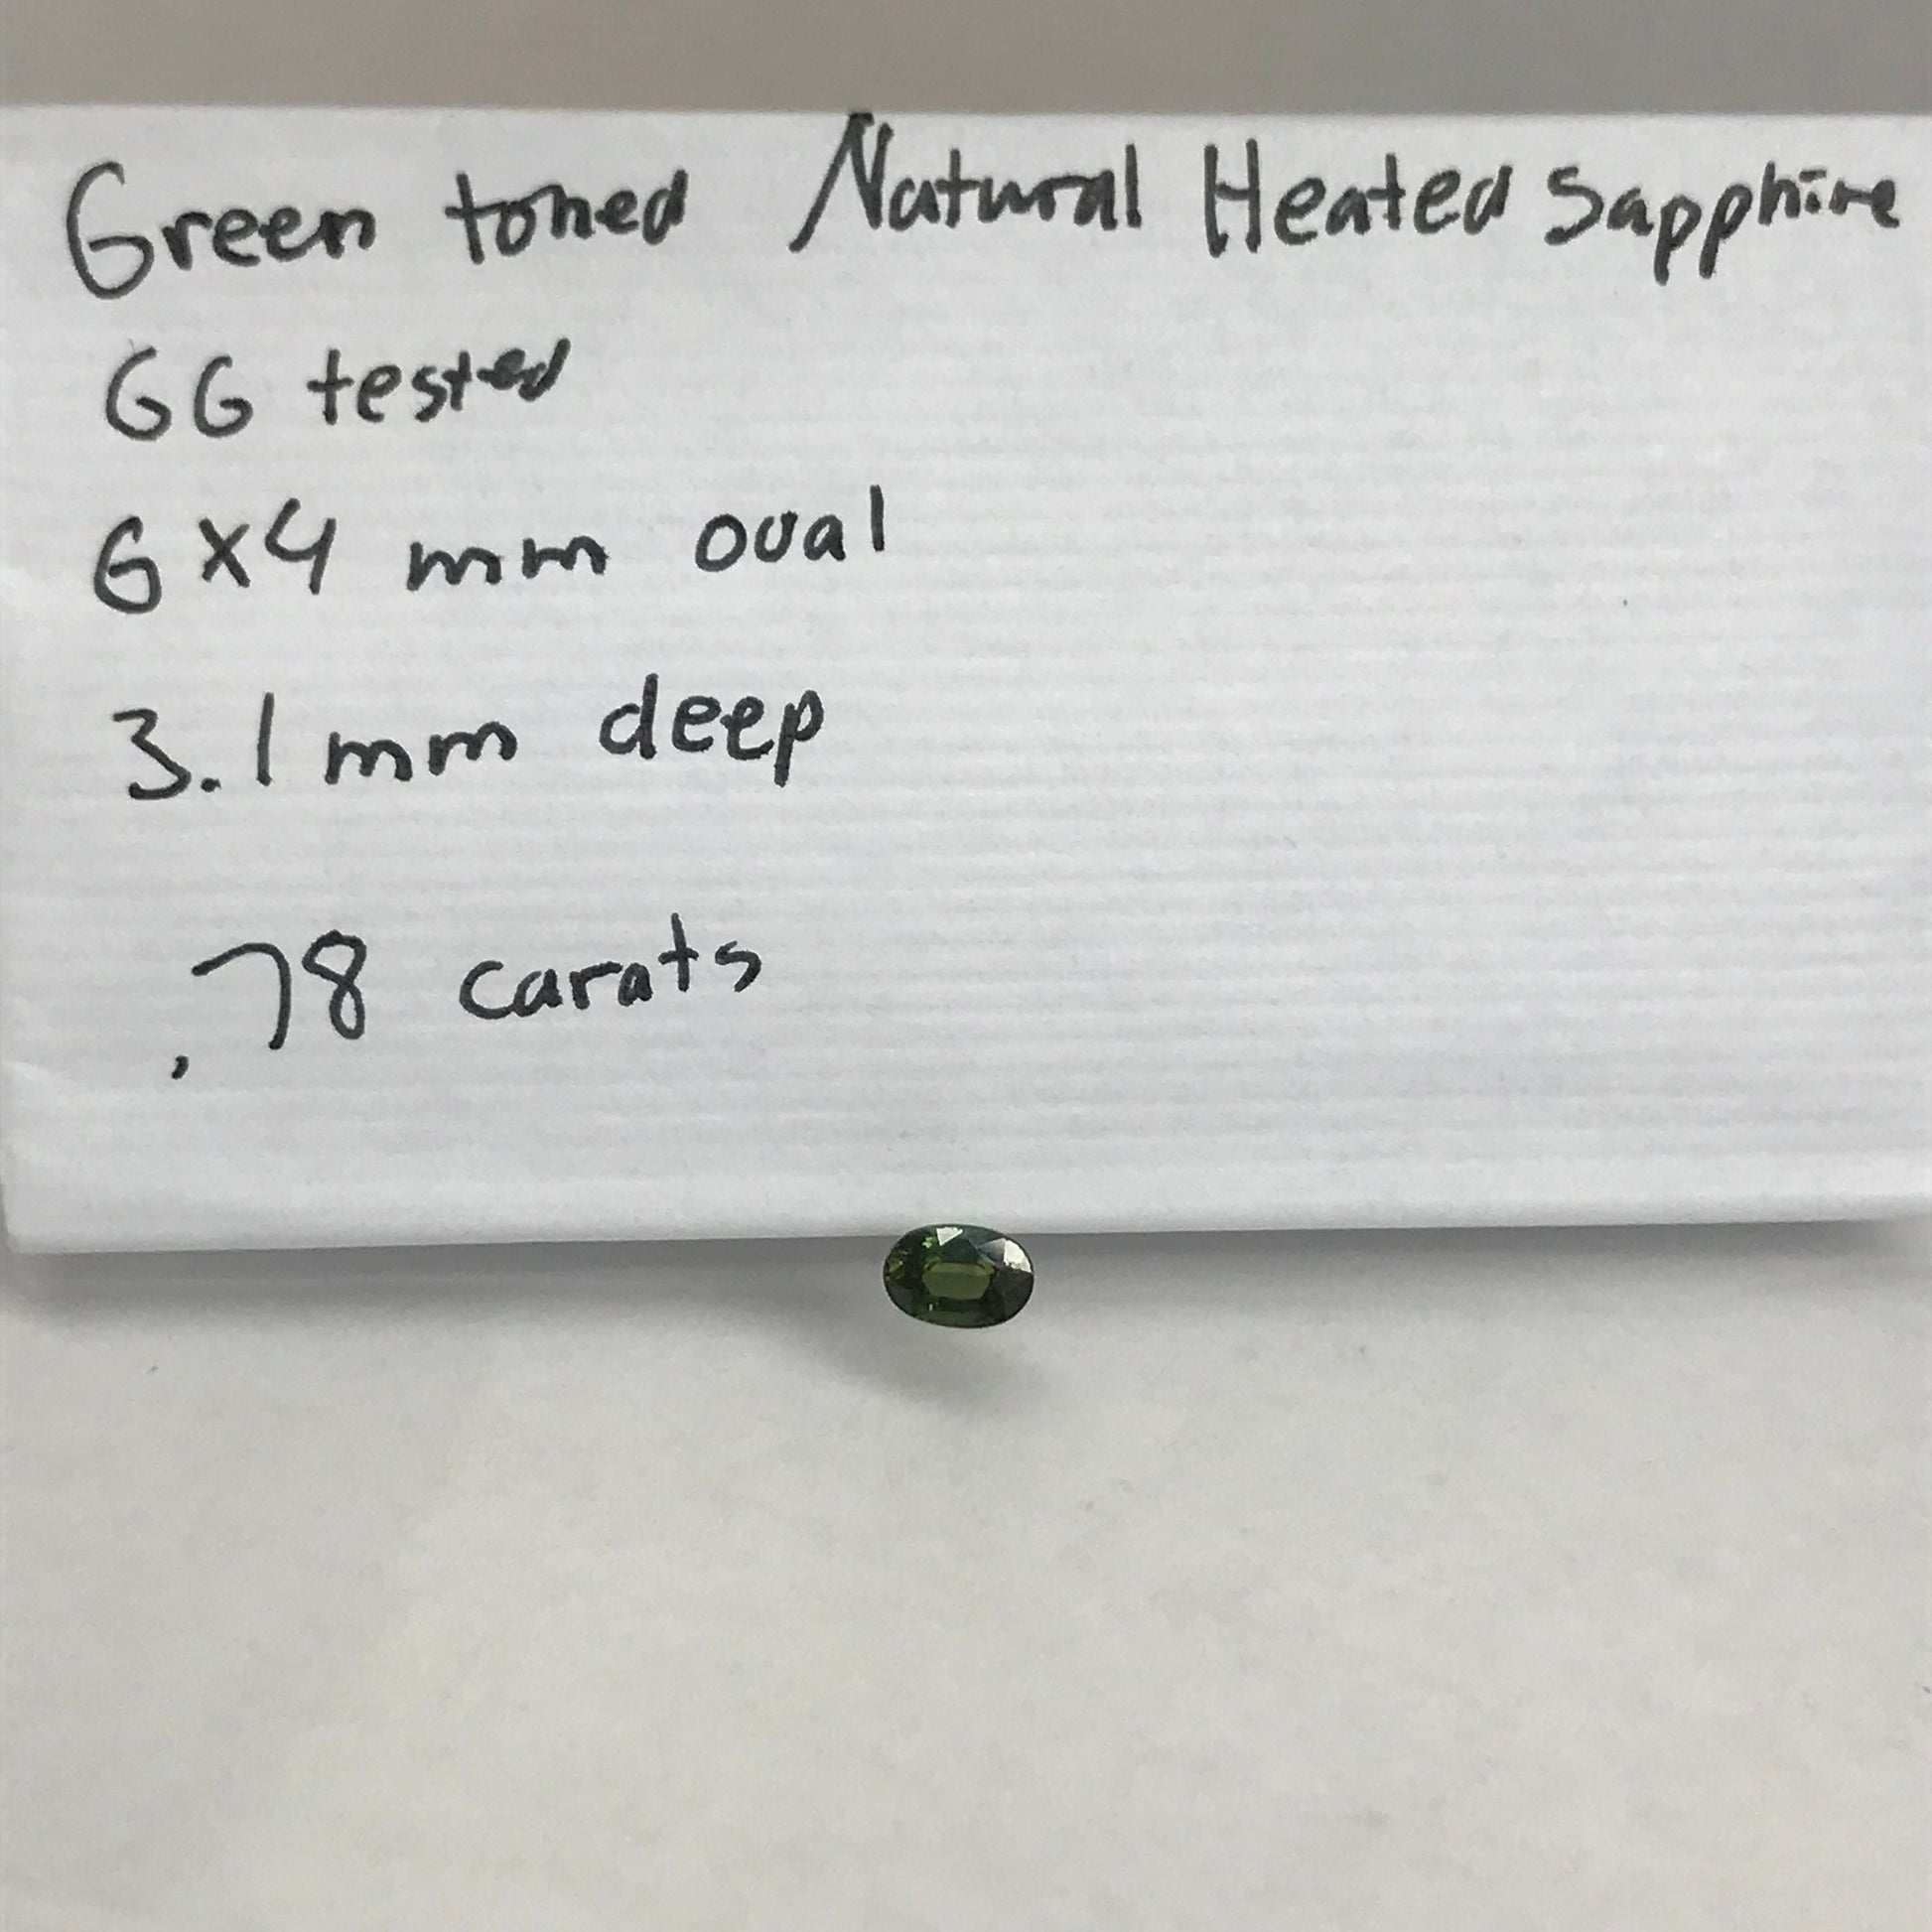 Green toned Natural Heated Sapphire
GG tested
6x4 mm oval
3.1mm deep
.78 carats